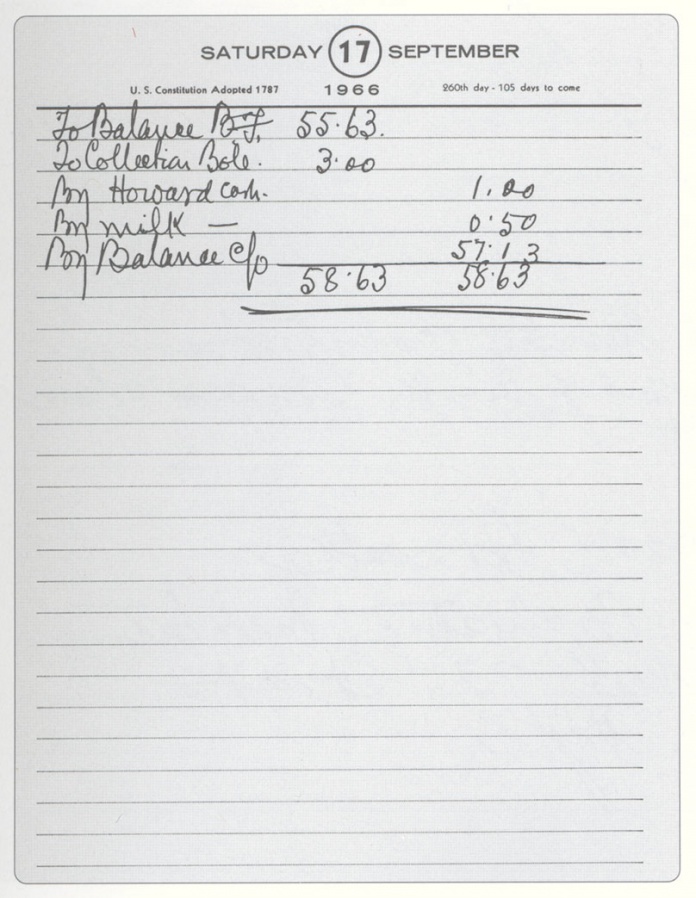 SATURDAY 17 SEPTEMBER
U. S. Constitution Adopted 1787 1966 260th day - 105 days to come
To Balance B.f. 55.63.
To Collection Bole. 3.00
By Howard Cash. 1.00
By milk — 0.50
By Balance c/o 57.13
58.63 58.63